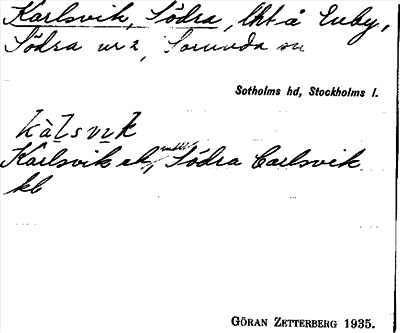 Karlsvik, Södra, lht å Enby,
Södra nr 2, Sorunda sn
Sotholms hd, Stockholms l.
kàlsvik
Karlsvik ek, Södra Carlsvik
kb
GÖRAN ZETTERBERG 1935.